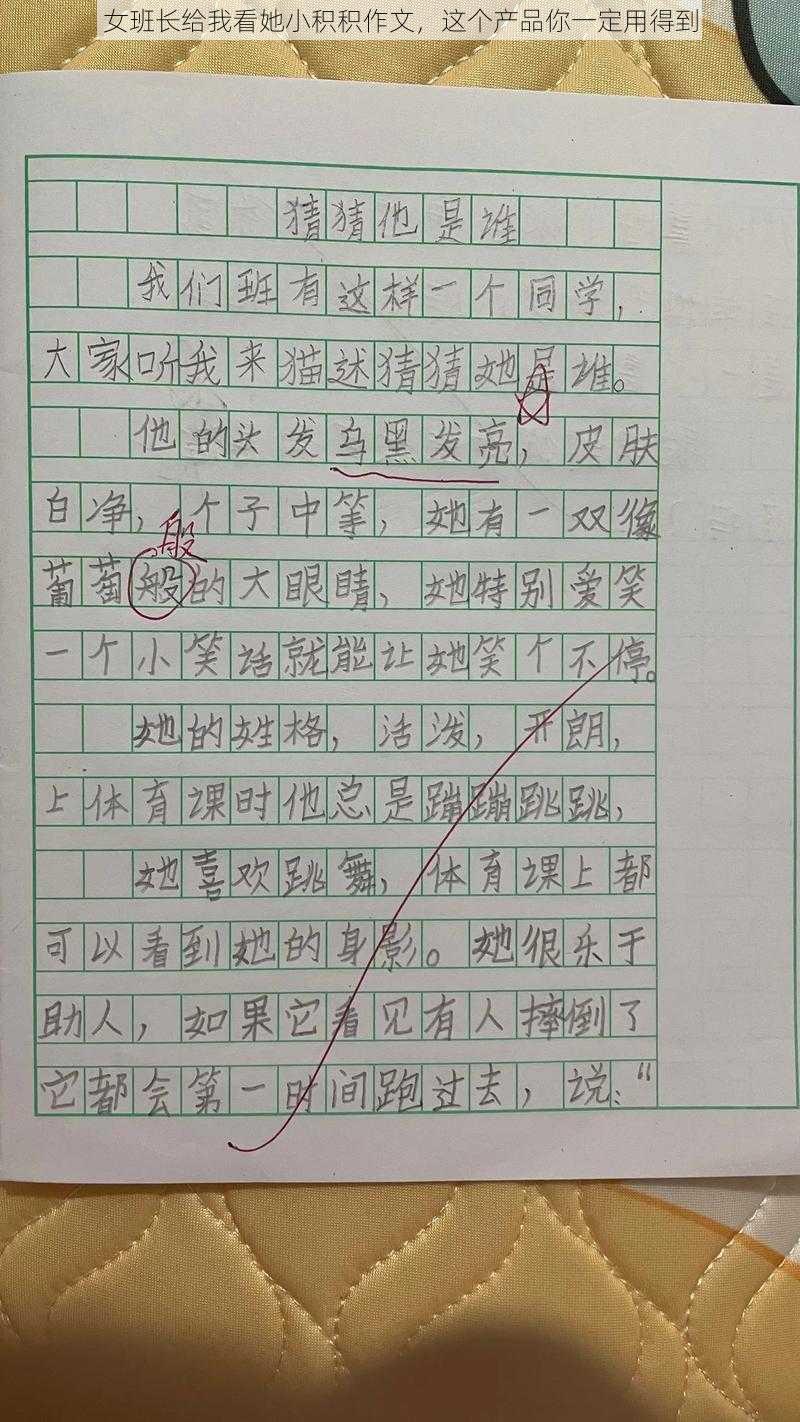 女班长给我看她小积积作文，这个产品你一定用得到
猜猜他是谁
我们班有这样一个同学，
大家听我来猫述猜猜她是谁。
他的头发乌黑发亮，皮肤
白净，个子中等，她有一双像
般
葡萄般的大眼睛，她特别爱笑
一个小笑话就能让她笑个不停。
她的姓格，活泼，开朗，
上体育课时他总是蹦蹦跳跳，
她喜欢跳舞，体育课上都
可以看到她的身影。她很乐于
助人，如果它看见有人摔倒了
它都会第一时间跑过去，说：“